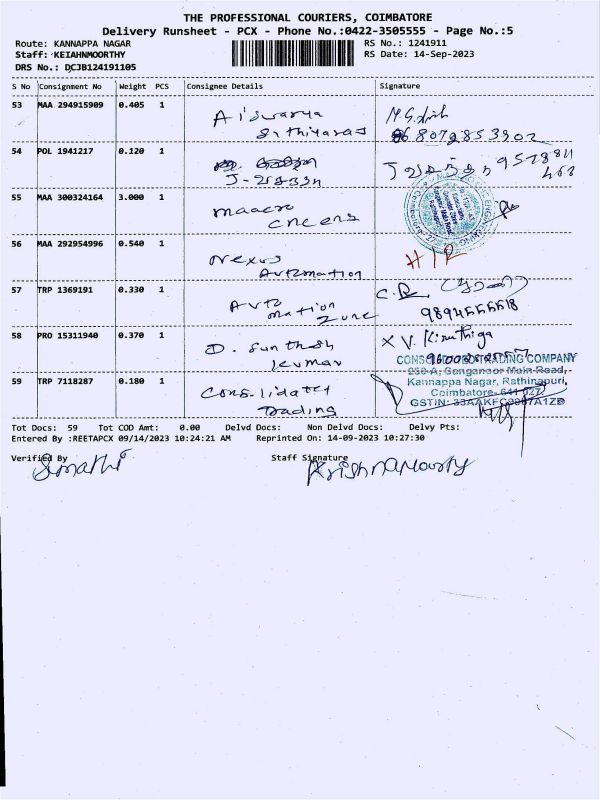 THE PROFESSIONAL COURIERS, COIMBATORE
Delivery Runsheet - PCX - Phone No.:0422-3505555 - Page No.:5
Route: KANNAPPA NAGAR RS No.: 1241911
Staff: KEIAHNMOORTHY RS Date: 14-Sep-2023
DRS No.: DCJB124191105
S No Consignment No Weight PCS Consignee Details Signature
53 MAA 294915909 0.405 1 Aiswarya
Srthiyaraj
8072853902
54 POL 1941217 0.120 1
55 MAA 300324164 3.000 1 maacro
cncens
56 MAA 292954996 0.540 1 Nexus HIR
Automation
57 TRP 1369191 0.330 1 Auto C.R.
mation 9894555518
zone
58 PRO 15311940 0.370 1 D. Sunthosh X V. Kiruthiga
kumar
TRADING COMPANY
59 TRP 7118287 0.180 1 Considated Kannappa Nagar, Rathinapuri,
Trading Coimbatore
GSTIN:
Tot Docs: 59 Tot COD Amt: 0.00 Delvd Docs: Non Delvd Docs: Delvy Pts:
Entered By :REETAPCX 09/14/2023 10:24:21 AM Reprinted On: 14-09-2023 10:27:30
Verified By Staff Signature
Sumathi Krishnamoorty